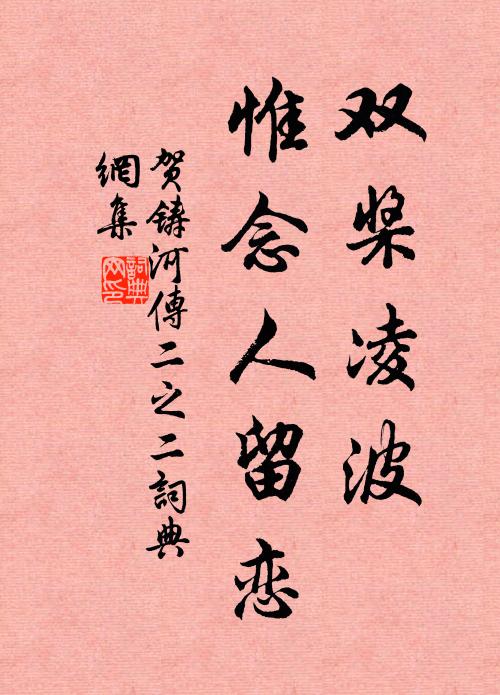 双桨凌波
惟念人留恋
贺铸河傳二之二詞典
網集
詞典網印